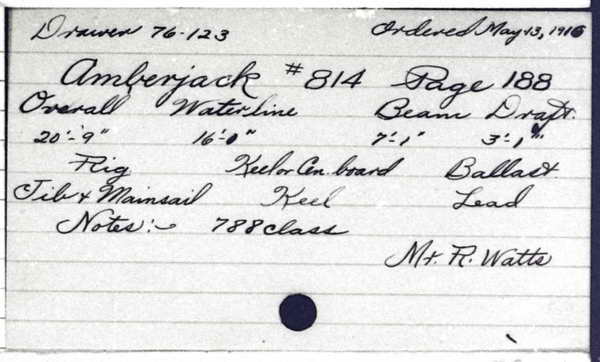 Drawer 76-123 Ordered May 13, 1916
Amberjack #814 Page 188
Overall Waterline Beam Draft.
20'-9" 16'-0" 7'-1" 3'-1"
Rig Keel or Cen. board Ballast
Jib & Mainsail Keel Lead
Notes:- 788 class
Mr. R. Watts